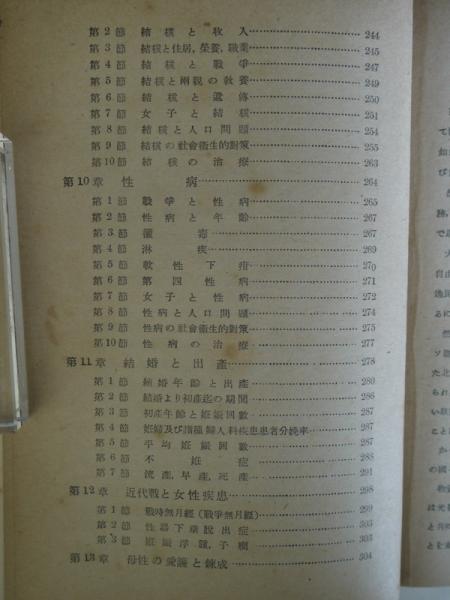 第2節 結核と收入 244
第3節 結核と住居,榮養,職業 245
第4節 結核と戰爭 247
第5節 結核と兩親の教養 249
第6節 結核と遺傳 250
第7節 女子と結核 251
第8節 結核と人口問題 254
第9節 結核の社會衞生的對策 255
第10節 結核の治療 263
第10章 性病 264
第1節 戰爭と性病 265
第2節 性病と年齡 267
第3節 黴毒 267
第4節 淋疾 269
第5節 軟性下疳 270
第6節 第四性病 271
第7節 女子と性病 272
第8節 性病と人口問題 274
第9節 性病の社會衞生的對策 275
第10節 性病の治療 277
第11章 結婚と出產 278
第1節 結婚年齡と出產 280
第2節 結婚より初產迄の期間 286
第3節 初產年齡と姙娠回數 287
第4節 姙婦及び諸種婦人科疾患患者分娩率 287
第5節 平均姙娠回數 287
第6節 不姙症 288
第7節 流產,早產,死產 291
第12章 近代戰と女性疾患 298
第1節 戰時無月經(戰爭無月經) 299
第2節 性器下垂脫出症 303
第3節 姙娠浮腫,子癇 303
第13章 母性の愛護と錬成 304